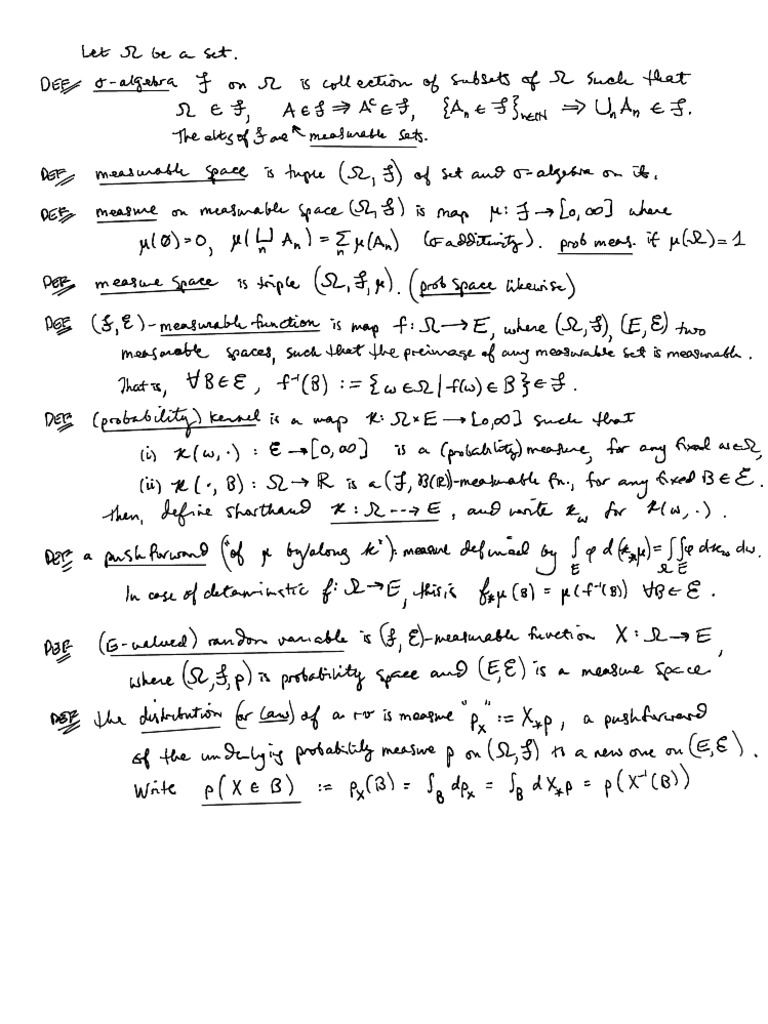 Let Ω be a set.
DEF σ-algebra ℱ on Ω is collection of subsets of Ω such that
Ω ∈ ℱ, A ∈ ℱ ⇒ Aᶜ ∈ ℱ, {Aₙ ∈ ℱ}ₙ∈ℕ ⇒ ⋃ₙ Aₙ ∈ ℱ.
The elts of ℱ are ↖ measurable sets.
DEF measurable space is tuple (Ω, ℱ) of set and σ-algebra on it.
DEF measure on measurable space (Ω, ℱ) is map μ: ℱ → [0, ∞] where
μ(∅) = 0, μ(⨆ₙ Aₙ) = Σₙ μ(Aₙ) (σ additivity). prob meas. if μ(Ω) = 1
DEF measure space is triple (Ω, ℱ, μ). (prob space likewise)
DEF (ℱ, ℰ)-measurable function is map f: Ω → E, where (Ω, ℱ), (E, ℰ) two
measurable spaces, such that the preimage of any measurable set is measurable.
That is, ∀B ∈ ℰ, f⁻¹(B) := {ω ∈ Ω | f(ω) ∈ B} ∈ ℱ.
DEF (probability) kernel is a map κ: Ω × E → [0, ∞] such that
(i) κ(ω, ·) : ℰ → [0, ∞] is a (probability) measure, for any fixed ω ∈ Ω,
(ii) κ(·, B) : Ω → ℝ is a (ℱ, B(ℝ))-measurable fn., for any fixed B ∈ ℰ.
Then, define shorthand κ : Ω ---> E, and write κ_ω for κ(ω, ·).
DEF a pushforward ("of μ by/along κ"): measure defined by ∫_E φ d(κ_*μ) = ∫_Ω ∫_E φ dκ_ω dω.
In case of deterministic f: Ω → E, this is f_*μ(B) = μ(f⁻¹(B)) ∀B ∈ ℰ.
DEF (E-valued) random variable is (ℱ, ℰ)-measurable function X: Ω → E,
where (Ω, ℱ, p) is probability space and (E, ℰ) is a measure space
DEF the distribution (or law) of a rv is measure "p_X" := X_*p, a pushforward
of the underlying probability measure p on (Ω, ℱ) to a new one on (E, ℰ).
Write p(X ∈ B) := p_X(B) = ∫_B dp_X = ∫_B dX_*p = p(X⁻¹(B))